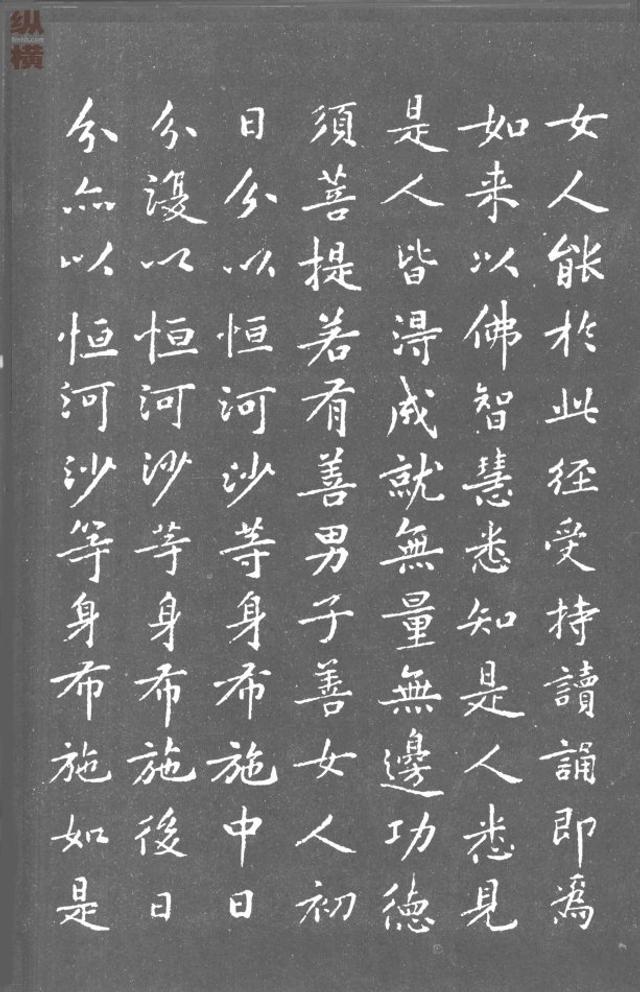 女人能於此経受持讀誦即為
如来以佛智慧悉知是人悉見
是人皆得成就無量無邊功德
須菩提若有善男子善女人初
日分以恒河沙等身布施中日
分復以恒河沙等身布施後日
分亦以恒河沙等身布施如是
纵横